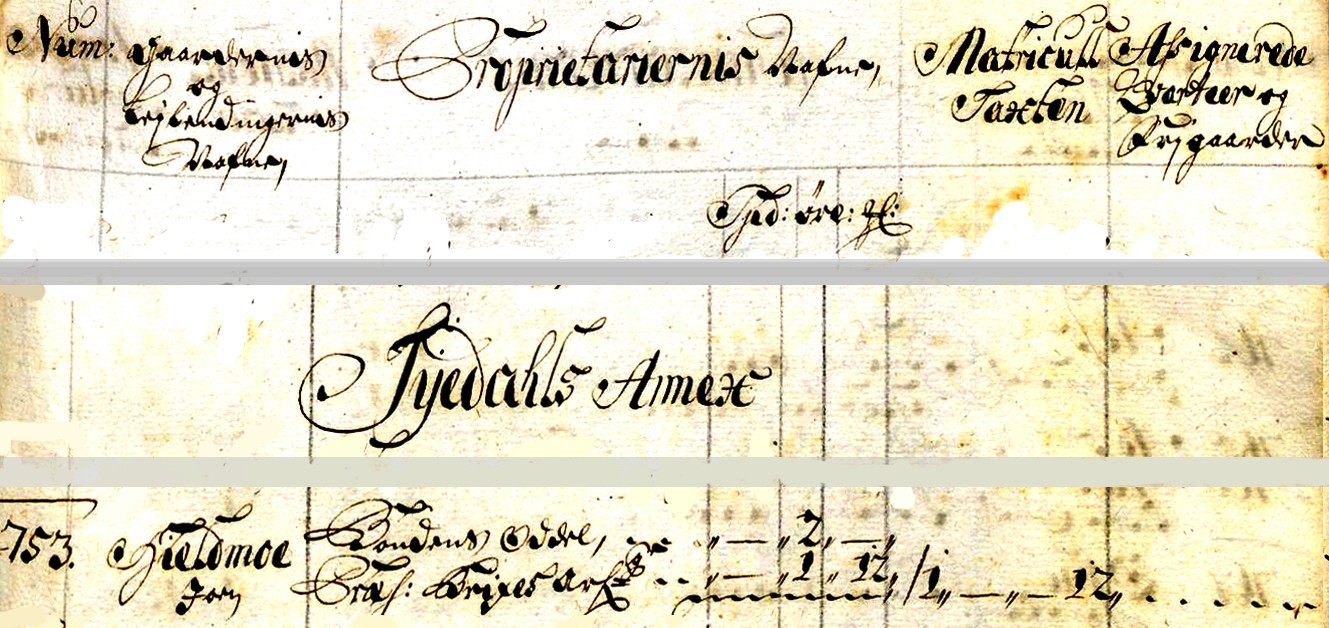 Num:
Gaardernis
og
Leylendingernis
Nafne,
Proprietariernis Nafne,
Matriculs
Taxten
Assignerede
Qvarteer og
Frjgaarder
Spd: öre: ℔:
Tyedahls Annex
753.
Hieldmoe
Joen
Bondens Oddel, „ — „ 2 „ — „
Præs: Kriges Arf: „ — „ 1 „ 12 „ / 1 „ — „ — 12 „